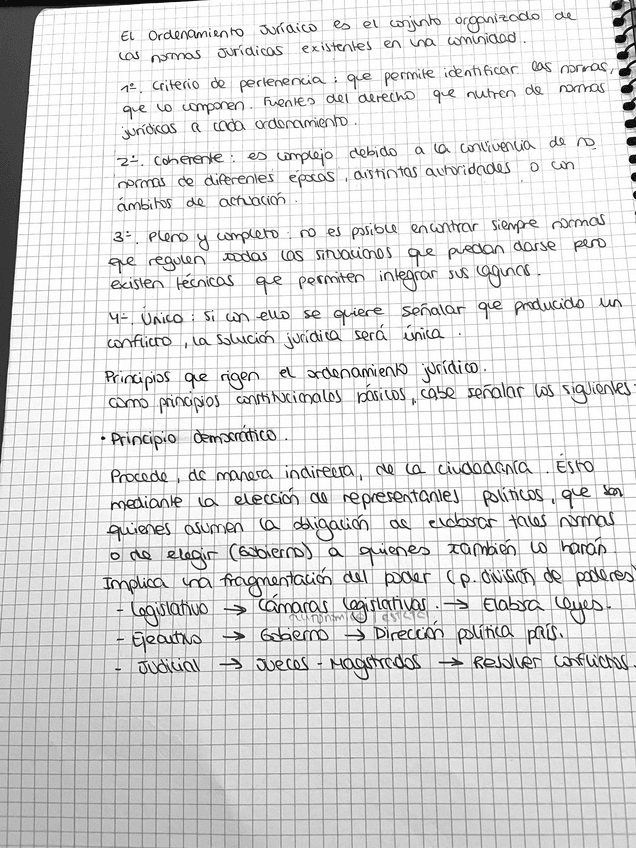 El Ordenamiento Jurídico es el conjunto organizado de
las normas jurídicas existentes en una comunidad.
1º. Criterio de pertenencia: que permite identificar las normas,
que lo componen. Fuentes del derecho que nutren de normas
jurídicas a cada ordenamiento.
2º. Coherente: es complejo debido a la convivencia de no
normas de diferentes épocas, distintas autoridades o con
ámbitos de actuación.
3º. Pleno y completo: no es posible encontrar siempre normas
que regulen todas las situaciones que puedan darse pero
existen técnicas que permiten integrar sus lagunas.
4º. Único: si con ello se quiere señalar que producido un
conflicto, la solución jurídica será única.
Principios que rigen el ordenamiento jurídico.
como principios constitucionales básicos, cabe señalar los siguientes:
· Principio democrático.
Procede, de manera indirecta, de la ciudadanía. Esto
mediante la elección de representantes políticos, que son
quienes asumen la obligación de elaborar tales normas
o de elegir (Gobierno) a quienes también lo harán
Implica una fragmentación del poder (p. división de poderes)
- Legislativo → Cámaras legislativas. → Elabora leyes.
- Ejecutivo → Gobierno → Dirección política país.
- Judicial → Jueces - Magistrados → Resolver conflictos.